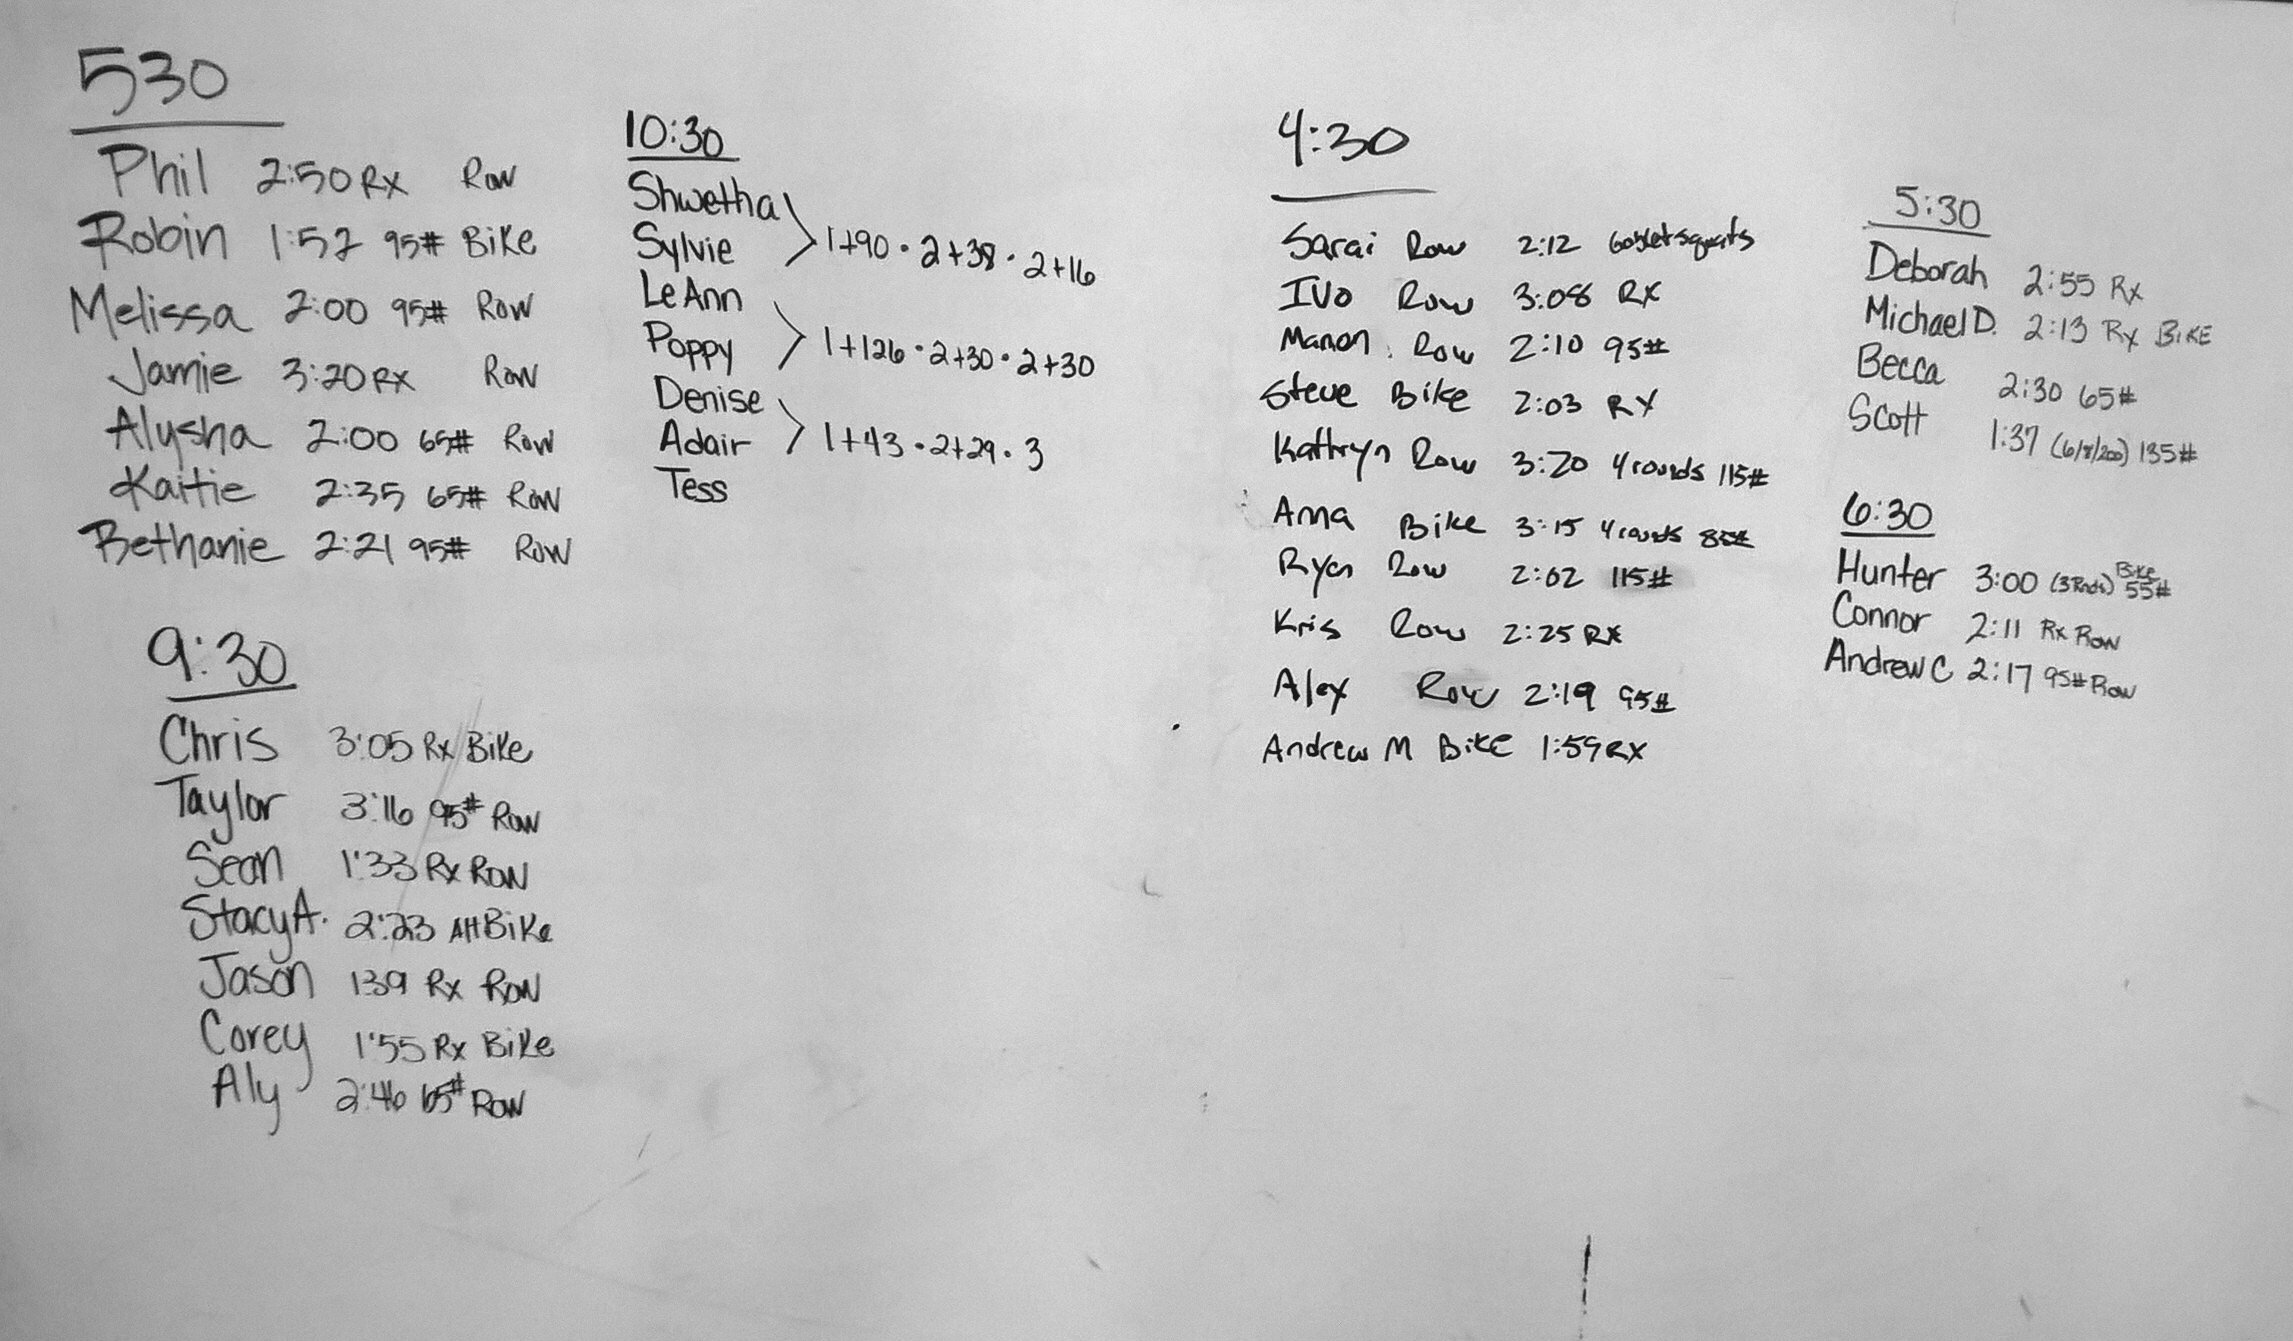 530
Phil 2:50 RX Row
Robin 1:57 95# Bike
Melissa 2:00 95# Row
Jamie 3:20 RX Row
Alysha 2:00 65# Row
Kaitie 2:35 65# Row
Bethanie 2:21 95# Row
9:30
Chris 3:05 Rx Bike
Taylor 3:16 95# Row
Sean 1:33 Rx Row
Stacy A. 2:23 AH Bike
Jason 139 Rx Row
Corey 1:55 Rx Bike
Aly 2:46 65# Row
10:30
Shwetha
Sylvie 1+90 · 2+38 · 2+16
LeAnn
Poppy 1+126 · 2+30 · 2+30
Denise
Adair 1+43 · 2+29 · 3
Tess
4:30
Sarai Row 2:12 Goblet squats
Ivo Row 3:08 RX
Manon Row 2:10 95#
Steve Bike 2:03 RX
Kathryn Row 3:20 4 rounds 115#
Anna Bike 3:15 4 rounds 85#
Ryan Row 2:02 115#
Kris Row 2:25 RX
Alex Row 2:19 95#
Andrew M Bike 1:59 RX
5:30
Deborah 2:55 Rx
Michael D. 2:13 Rx BIKE
Becca 2:30 65#
Scott 1:37 135#
6:30
Hunter 3:00 (3 Rnds) Bike 55#
Connor 2:11 Rx Row
Andrew C 2:17 95# Row